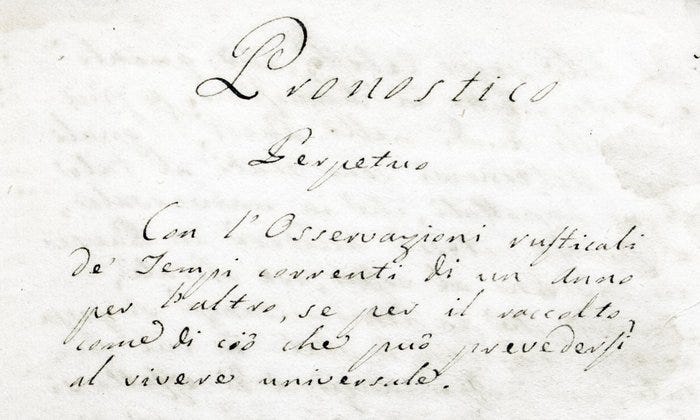 Pronostico
Perpetuo
Con l'Osservazioni rusticali
de' Tempi correnti di un anno
per l'altro, se per il raccolto,
come di ciò che può prevedersi
al vivere universale.